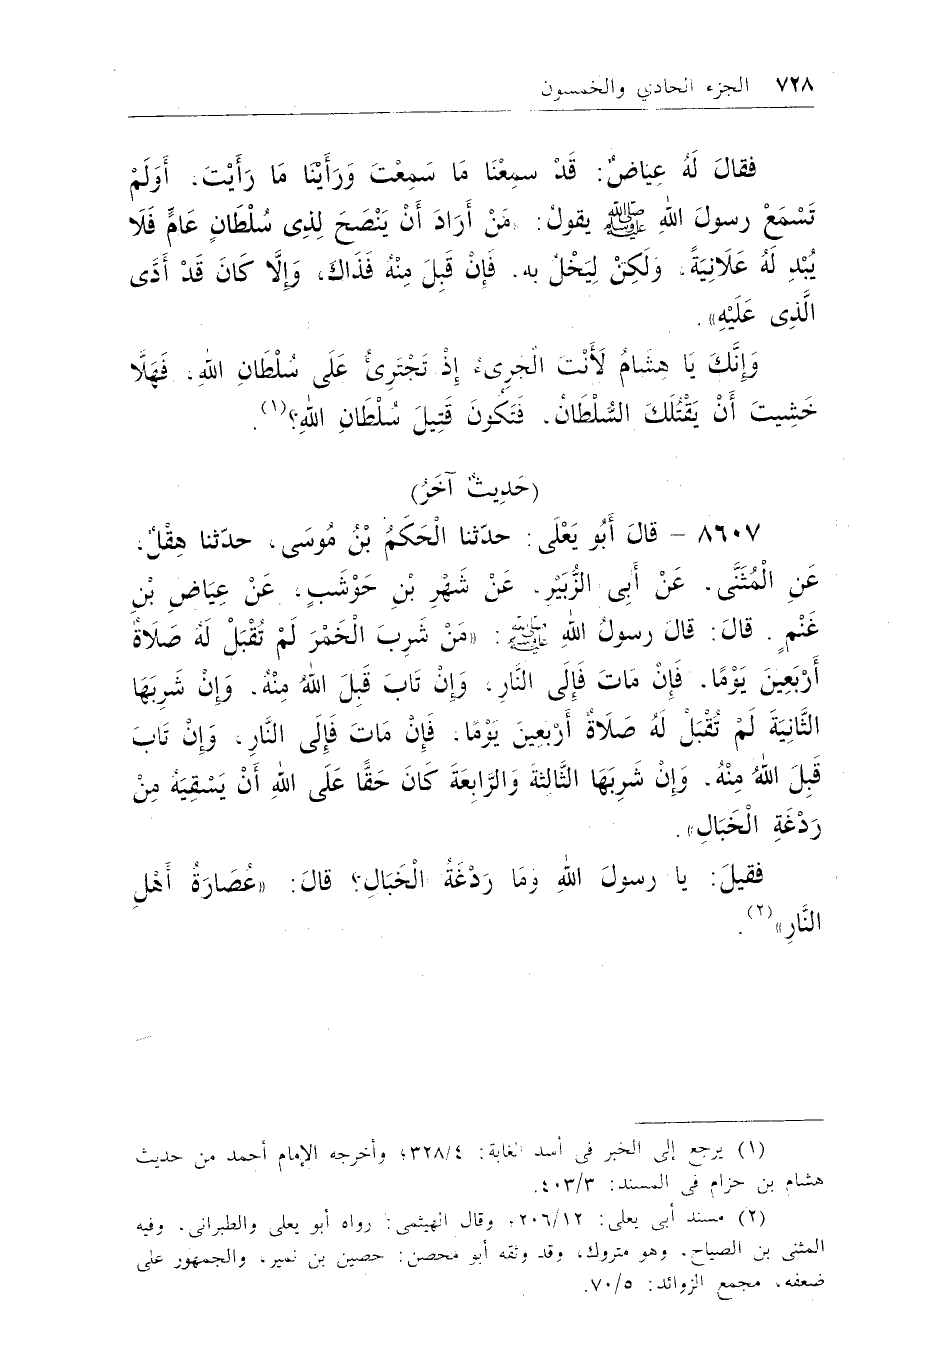 ٧٢٨ الجزء الحادي والخمسون
فقالَ لَهُ عِياضٌ: قَدْ سمِعْنَا مَا سَمِعْتَ وَرَأَيْنَا مَا رَأَيْتَ. أَوَلَمْ
تَسْمَعْ رسولَ اللهِ ﷺ يقولُ: «مَنْ أَرَادَ أَنْ يَنْصَحَ لِذِى سُلْطَانٍ عَامٍّ فَلَا
يُبْدِ لَهُ عَلَانِيَةً، وَلَكِنْ لِيَخْلُ به. فَإِنْ قَبِلَ مِنْهُ فَذَاكَ، وَإِلَّا كَانَ قَدْ أَدَّى
الَّذِى عَلَيْهِ».
وَإِنَّكَ يَا هِشَامُ لَأَنْتَ الْجَرِىءُ إِذْ تَجْتَرِئُ عَلَى سُلْطَانِ اللهِ. فَهَلَّا
خَشِيتَ أَنْ يَقْتُلَكَ السُّلْطَانُ. فَتَكُونَ قَتِيلَ سُلْطَانِ اللهِ؟(١).
(حَدِيثٌ آخَرُ)
٨٦٠٧ – قالَ أَبُو يَعْلَى: حدّثنا الْحَكَمُ بْنُ مُوسَى، حدّثنا هِقْلٌ،
عَنِ الْمُثَنَّى. عَنْ أَبِى الزُّبَيْرِ. عَنْ شَهْرِ بْنِ حَوْشَبٍ، عَنْ عِيَاضِ بْنِ
غَنْمٍ. قالَ: قالَ رسولُ اللهِ ﷺ: «مَنْ شَرِبَ الْخَمْرَ لَمْ تُقْبَلْ لَهُ صَلَاةٌ
أَرْبَعِينَ يَوْمًا. فَإِنْ مَاتَ فَإِلَى النَّارِ، وَإِنْ تَابَ قَبِلَ اللهُ مِنْهُ. وَإِنْ شَرِبَهَا
الثَّانِيَةَ لَمْ تُقْبَلْ لَهُ صَلَاةٌ أَرْبَعِينَ يَوْمًا. فَإِنْ مَاتَ فَإِلَى النَّارِ، وَإِنْ تَابَ
قَبِلَ اللهُ مِنْهُ. وَإِنْ شَرِبَهَا الثَّالِثَةَ وَالرَّابِعَةَ كَانَ حَقًّا عَلَى اللهِ أَنْ يَسْقِيَهُ مِنْ
رَدْغَةِ الْخَبَالِ».
فقيلَ: يا رسولَ اللهِ وَمَا رَدْغَةُ الْخَبَالِ؟ قالَ: «عُصَارَةُ أَهْلِ
النَّارِ»(٢).
(١) يرجع إلى الخبر فى أسد الغابة: ٣٢٨/٤؛ وأخرجه الإمام أحمد من حديث
هشام بن حزام فى المسند: ٤٠٣/٣.
(٢) مسند أبى يعلى: ٢٠٦/١٢، وقال الهيثمى: رواه أبو يعلى والطبرانى. وفيه
المثنى بن الصباح، وهو متروك، وقد وثقه أبو محصن: حصين بن نمير، والجمهور على
ضعفه. مجمع الزوائد: ٧٠/٥.